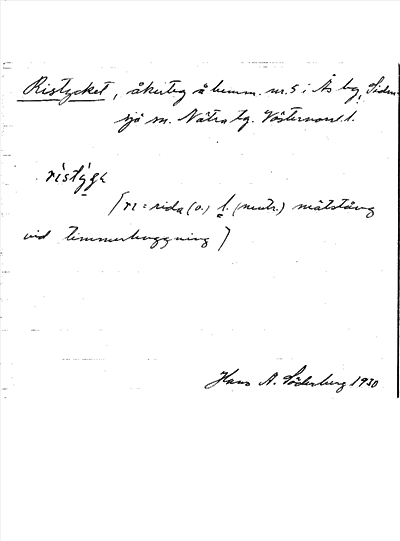 Ristycket, åkerteg å hemm. nr. 5 i Ås by, Siden-
sjö sn. Nätra tg. Västernorrl. l.
ristyga
[ri = rida (v.) l. (neutr.) mätstång
vid timmerhuggning]
Hans A. Söderberg 1930